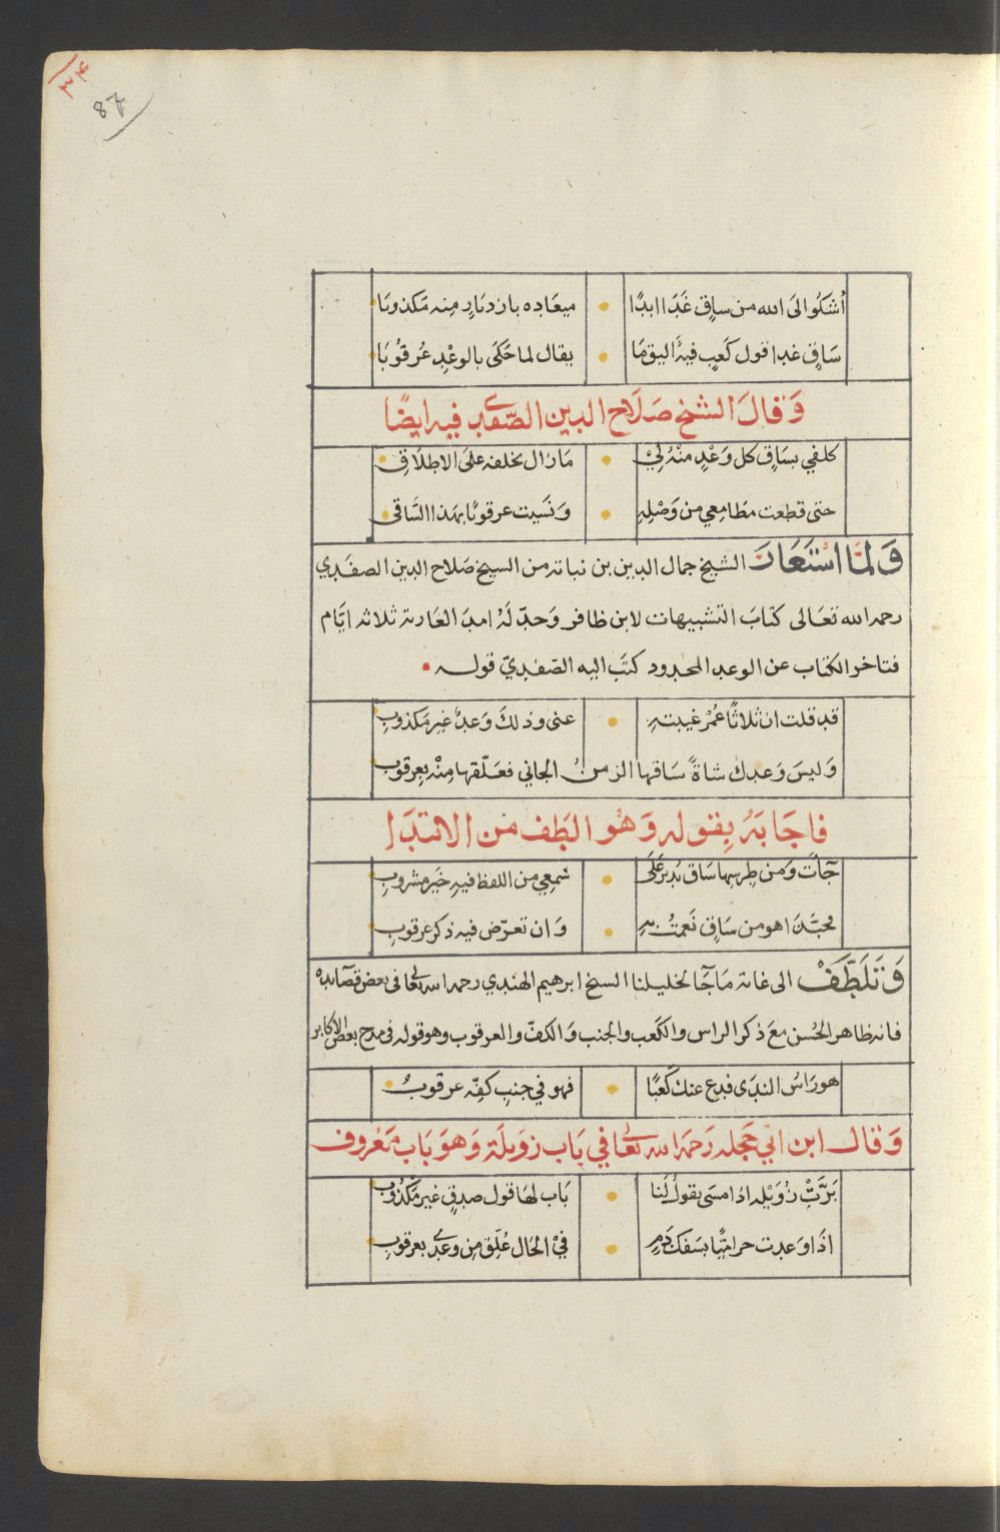 ٣٤
87
أشكوا لى الله من ساق غدا ابدًا • ميعاده بازديادٍ منه مكذوبا
ساق غدا قول كعب فيه اليق ما • يقال لما حكى بالوعد عرقوبا
وقال الشيخ صلاح الدين الصفدي فيه ايضًا
كلفي بساق كل وعد منه لي • مازال يخلفه على الاطلاق
حتى قطعت مطامعي من وصله • ونسيت عرقوبًا بهذا الساقى
ولما استعار الشيخ جمال الدين بن نباته من الشيخ صلاح الدين الصفدي
رحمه الله تعالى كتاب التشبيهات لابن ظافر وحدّ له امد العارية ثلاثه ايّام
فتاخر الكتاب عن الوعد المحدود كتب اليه الصفديّ قوله •
قد قلت ان ثلاثًا عمر غيبته • عنى وذلك وعدٌ غير مكذوب
وليس وعدك شاةً ساقها الزمنُ الجاني فعلّقها منه بعرقوب
فاجابه بقوله وهو الطف من الابتدا
جآت ومن طرسها ساق يدير على • سمعي من اللفظ فيه خير مشروب
يحبّذا هو من ساق نعمتُ به • وان تعرّض فيه ذكر عرقوب
وتلطّف الى غاية ما جآ لخليلنا الشيخ ابرهيم الهندي رحمه الله تعالى فى بعض قصآئده
فانه ظاهر الحُسن مع ذكر الراس والكعب والجنب والكفّ والعرقوب وهو قوله فى مدح بعض الاكابر
هو راسُ الندى فدع عنك كعبًا • فهو في جنب كفّه عرقوبُ
وقال ابن ابي حجله رحمه الله تعالى في باب زويلة وهو باب معروف
زويله اذا مسى يقول لنا • باب لها قول صدقٍ غير مكذوب
اذا وعدت حراميًّا بسفك دم • في الحال علّق من وعدى بعرقوب